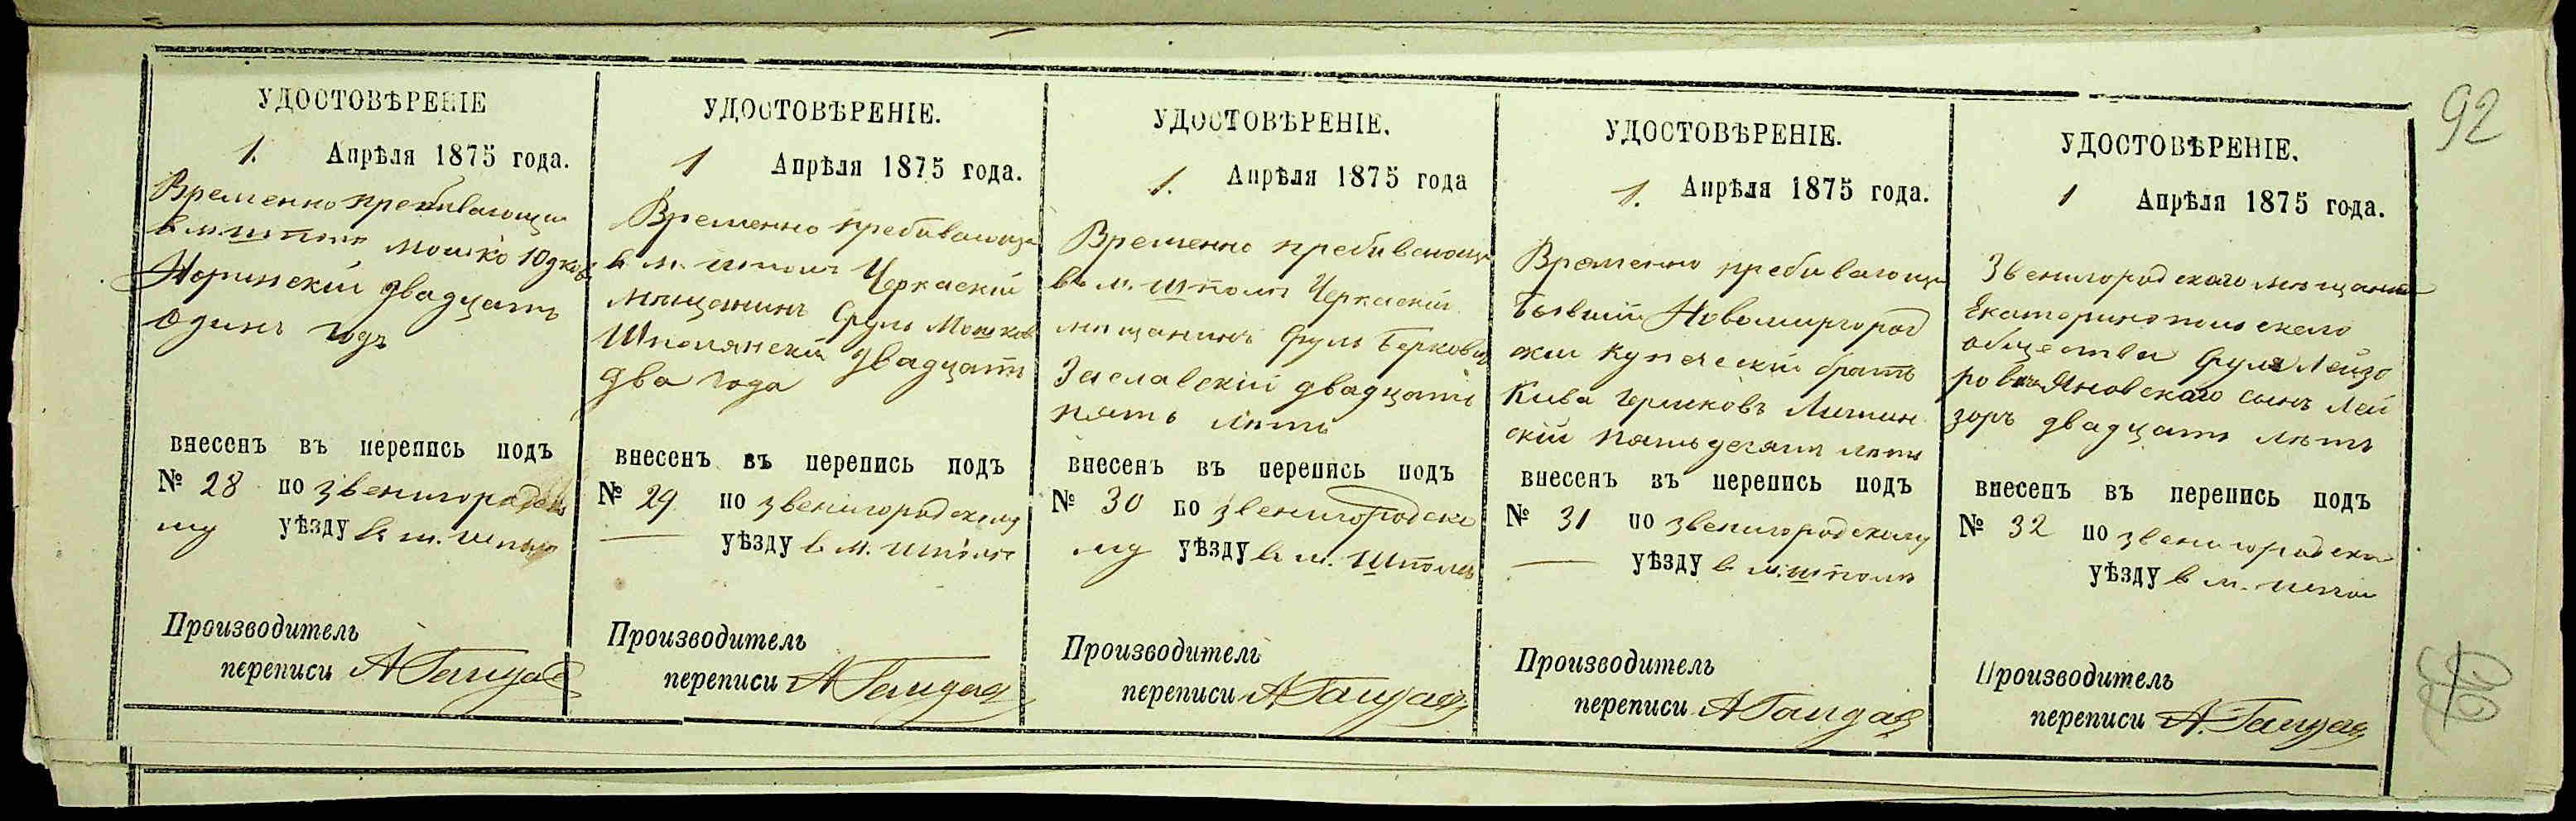 92
УДОСТОВѢРЕНІЕ
1. Апрѣля 1875 года.
Временно пребивающи
в м. Шполе Мошко Юдков
Норинскій двадцать
один годъ
внесенъ въ перепись подъ
№ 28 по звенигородско
му уѣзду в м. Шполе
Производитель
переписи
УДОСТОВѢРЕНІЕ.
1 Апрѣля 1875 года.
Временно пребивающи
в м. Шполе Черкаскій
мещанинъ Сруль Мошков
Шполянскій двадцать
два года
внесенъ въ перепись подъ
№ 29 по звенигородскому
уѣзду в м. Шполе
Производитель
переписи
УДОСТОВѢРЕНІЕ.
1. Апрѣля 1875 года
Временно пребивающи
в м. Шполе Черкаскій
мещанинъ Сруль Беркович
Заславскій двадцать
пять летъ
внесенъ въ перепись подъ
№ 30 по звенигородско
му уѣзду в м. Шполе
Производитель
переписи
УДОСТОВѢРЕНІЕ.
1. Апрѣля 1875 года.
Временно пребивающи
бывшій Новомиргород
скій купеческій братъ
Кива Гершковъ
скій пятьдесятъ летъ
внесенъ въ перепись подъ
№ 31 по звенигородскому
уѣзду в м. Шполе
Производитель
переписи
УДОСТОВѢРЕНІЕ.
1 Апрѣля 1875 года.
Звенигородского мещанина
Екатеринопольского
общества Сруля Лейзо
ровича Яновского сынъ Лей
зоръ двадцать летъ
внесенъ въ перепись подъ
№ 32 по звенигородско
уѣзду в м. Шпол
Производитель
переписи